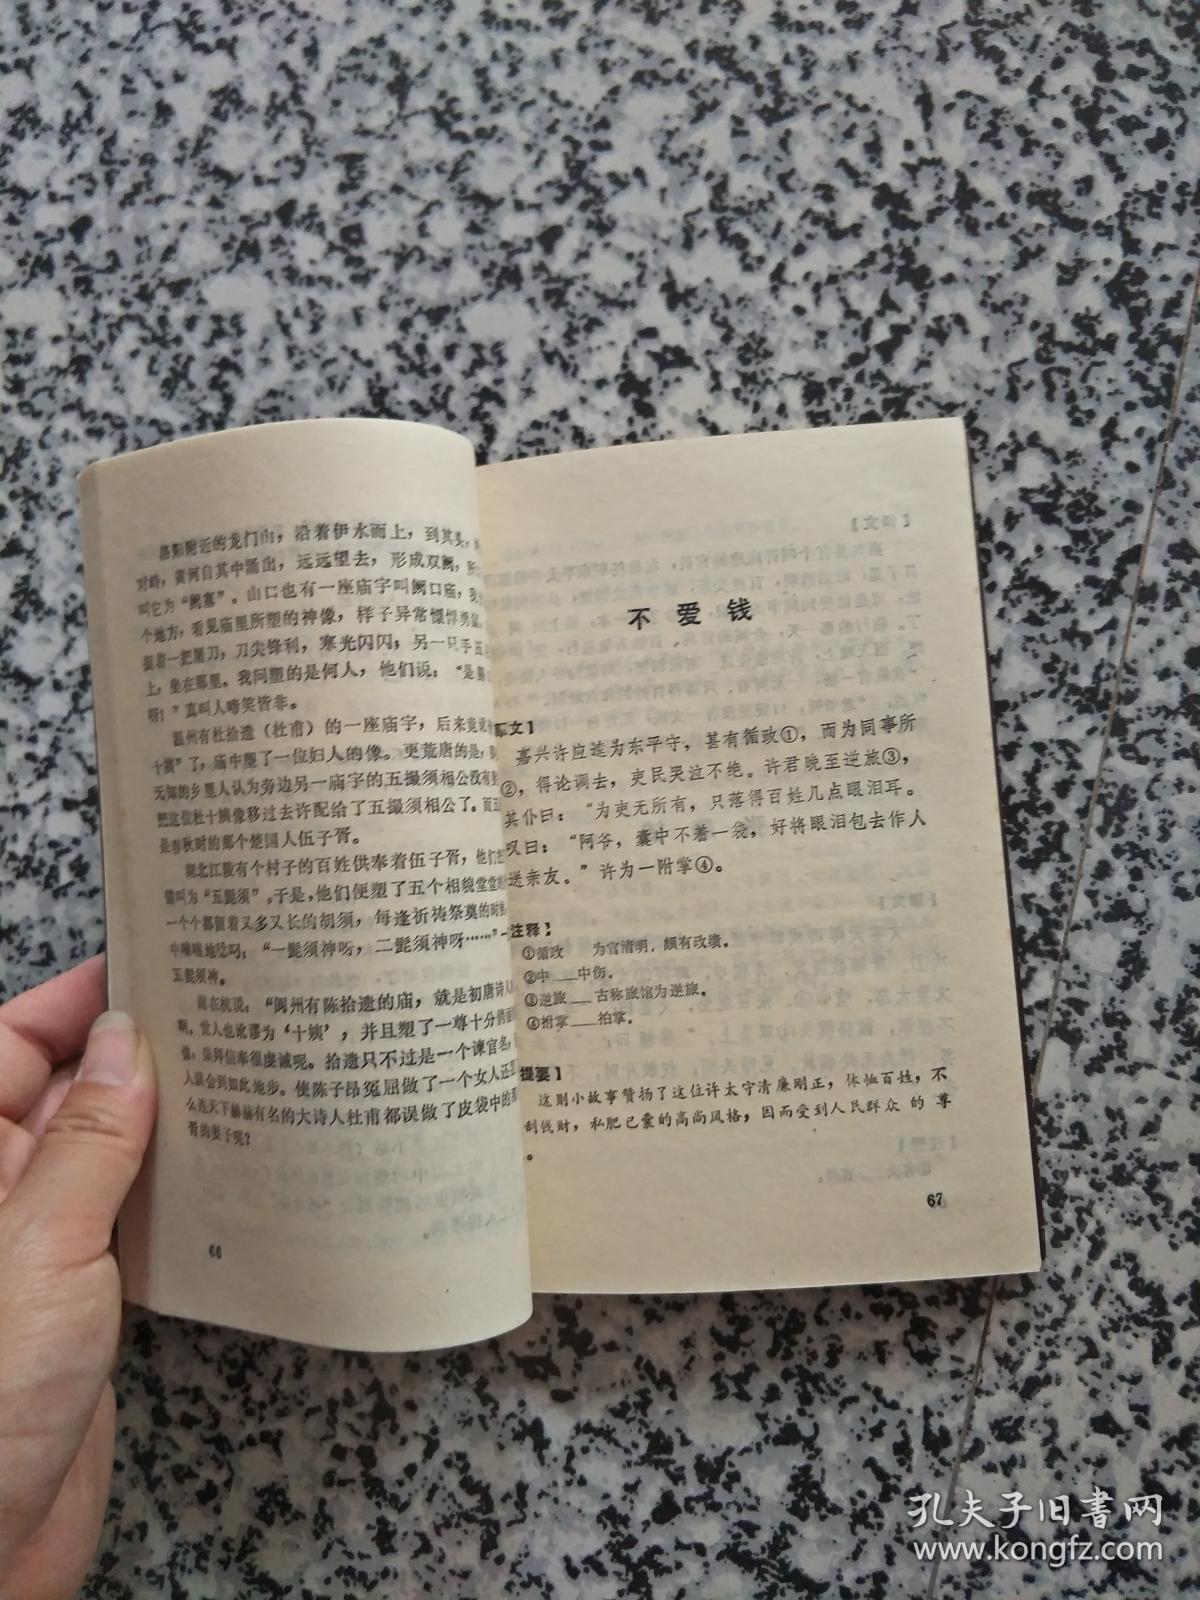 洛阳附近的龙门山，沿着伊水而上，到其
对峙，黄河自其中涌出，远远望去，形成双阙，所
叫它为“阙塞”。山口也有一座庙宇叫阙口庙，我
个地方，看见庙里所塑的神像，样子异常慓悍勇
握着一把屠刀，刀尖锋利，寒光闪闪；另一只手
上，坐在那里。我问塑的是何人，他们说：“是
呀！”真叫人啼笑皆非。
温州有杜拾遗（杜甫）的一座庙宇，后来竟
十姨”了，庙中塑了一位妇人的像。更荒唐的是，
无知的乡里人认为旁边另一庙宇的五撮须相公没有
把这位杜十姨像移过去许配给了五撮须相公了。而五
是春秋时的那个楚国人伍子胥。
湖北江陵有个村子的百姓供奉着伍子胥，他们
错叫为“五髭须”。于是，他们便塑了五个相貌堂堂
一个个都留着又多又长的胡须，每逢祈祷祭奠的时
中喃喃地唸吗：“一髭须神呀，二髭须神呀……”
五髭须神。
“阆州有陈拾遗的庙，就是初唐诗人
啊。世人也讹谬为‘十姨’，并且塑了一尊十分俏
像，崇拜信奉很虔诚呢。拾遗只不过是一个谏官名，
人就会到如此地步。使陈子昂冤屈做了一个女人还
么连天下赫赫有名的大诗人杜甫都误做了皮袋中的
胥的妻子呢？
66
不爱钱
文】
嘉兴许应逵为东平守，甚有循政①，而为同事所
②，得论调去，吏民哭泣不绝。许君晚至逆旅③，
其仆曰：“为吏无所有，只落得百姓几点眼泪耳。
叹曰：“阿爷，囊中不着一袋，好将眼泪包去作人
送亲友。”许为一附掌④。
注释】
①循政 为官清明，颇有改绩。
②中__中伤。
③逆旅__古称旅馆为逆旅。
④拊掌__拍掌。
提要】
这则小故事赞扬了这位许太守清廉刚正，体恤百姓，不
刮钱财，私肥已囊的高尚风格，因而受到人民群众的尊
。
67
孔夫子旧书网
www.kongfz.com